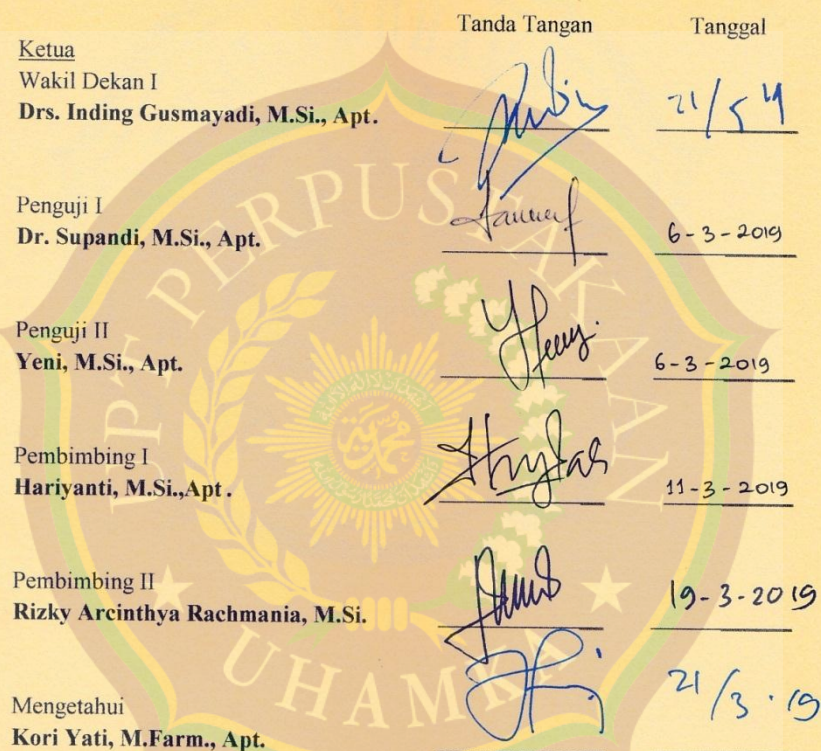 Tanda Tangan Tanggal
Ketua
Wakil Dekan I
Drs. Inding Gusmayadi, M.Si., Apt. 21/5 19
Penguji I
Dr. Supandi, M.Si., Apt. 6-3-2019
Penguji II
Yeni, M.Si., Apt. 6-3-2019
Pembimbing I
Hariyanti, M.Si.,Apt. 11-3-2019
Pembimbing II
Rizky Arcinthya Rachmania, M.Si. 19-3-2019
Mengetahui
Kori Yati, M.Farm., Apt. 21/3.19
UPT PERPUSTAKAAN
UHAMKA